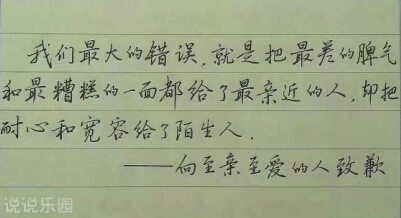 我们最大的错误,就是把最差的脾气
和最糟糕的一面都给了最亲近的人,却把
耐心和宽容给了陌生人.
——向至亲至爱的人致歉
说说乐园